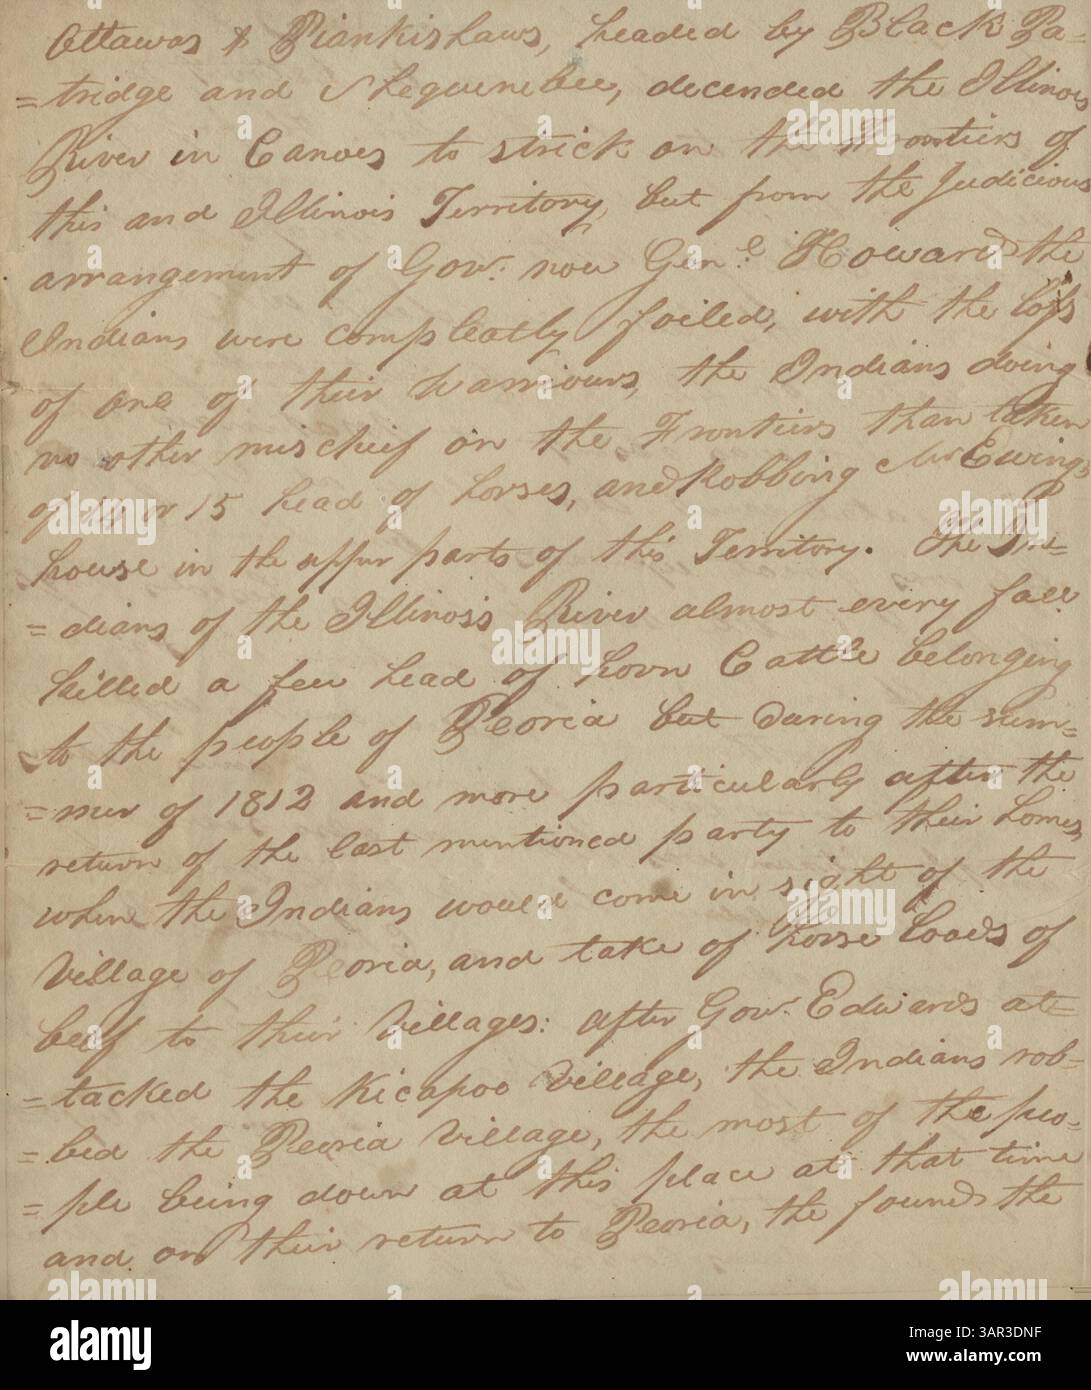 Ottawas & Piankishaws, headed by Black Pa=
=tridge and Shequenebec, decended the Illinois
River in Canoes to strick on the Frontiers of
this and Illinois Territory, but from the Judicious
arrangement of Gov. now Gen.l Howard the
Indians were compleatly foiled, with the loss
of one of their warriours, the Indians doing
no other mischief on the Frontiers than taken
of 14 or 15 head of horses, and Robbing Mr Ewings
house in the uppur parts of this Territory. The In=
=dians of the Illinois River almost every fall
killed a few head of horn Cattle belonging
to the people of Peoria but during the sum=
=mur of 1812 and more particularly after the
return of the last mentioned party to their homes,
when the Indians would come in sight of the
Village of Peoria, and take of horse loads of
beef to their Villages: after Gov. Edwards at=
=tacked the Kicapoo Village, the Indians rob=
=bed the Peoria Village, the most of the peo=
=ple being down at this place at that time
and on their return to Peoria, the founds the
alamy
Image ID: 3AR3DNF
www.alamy.com